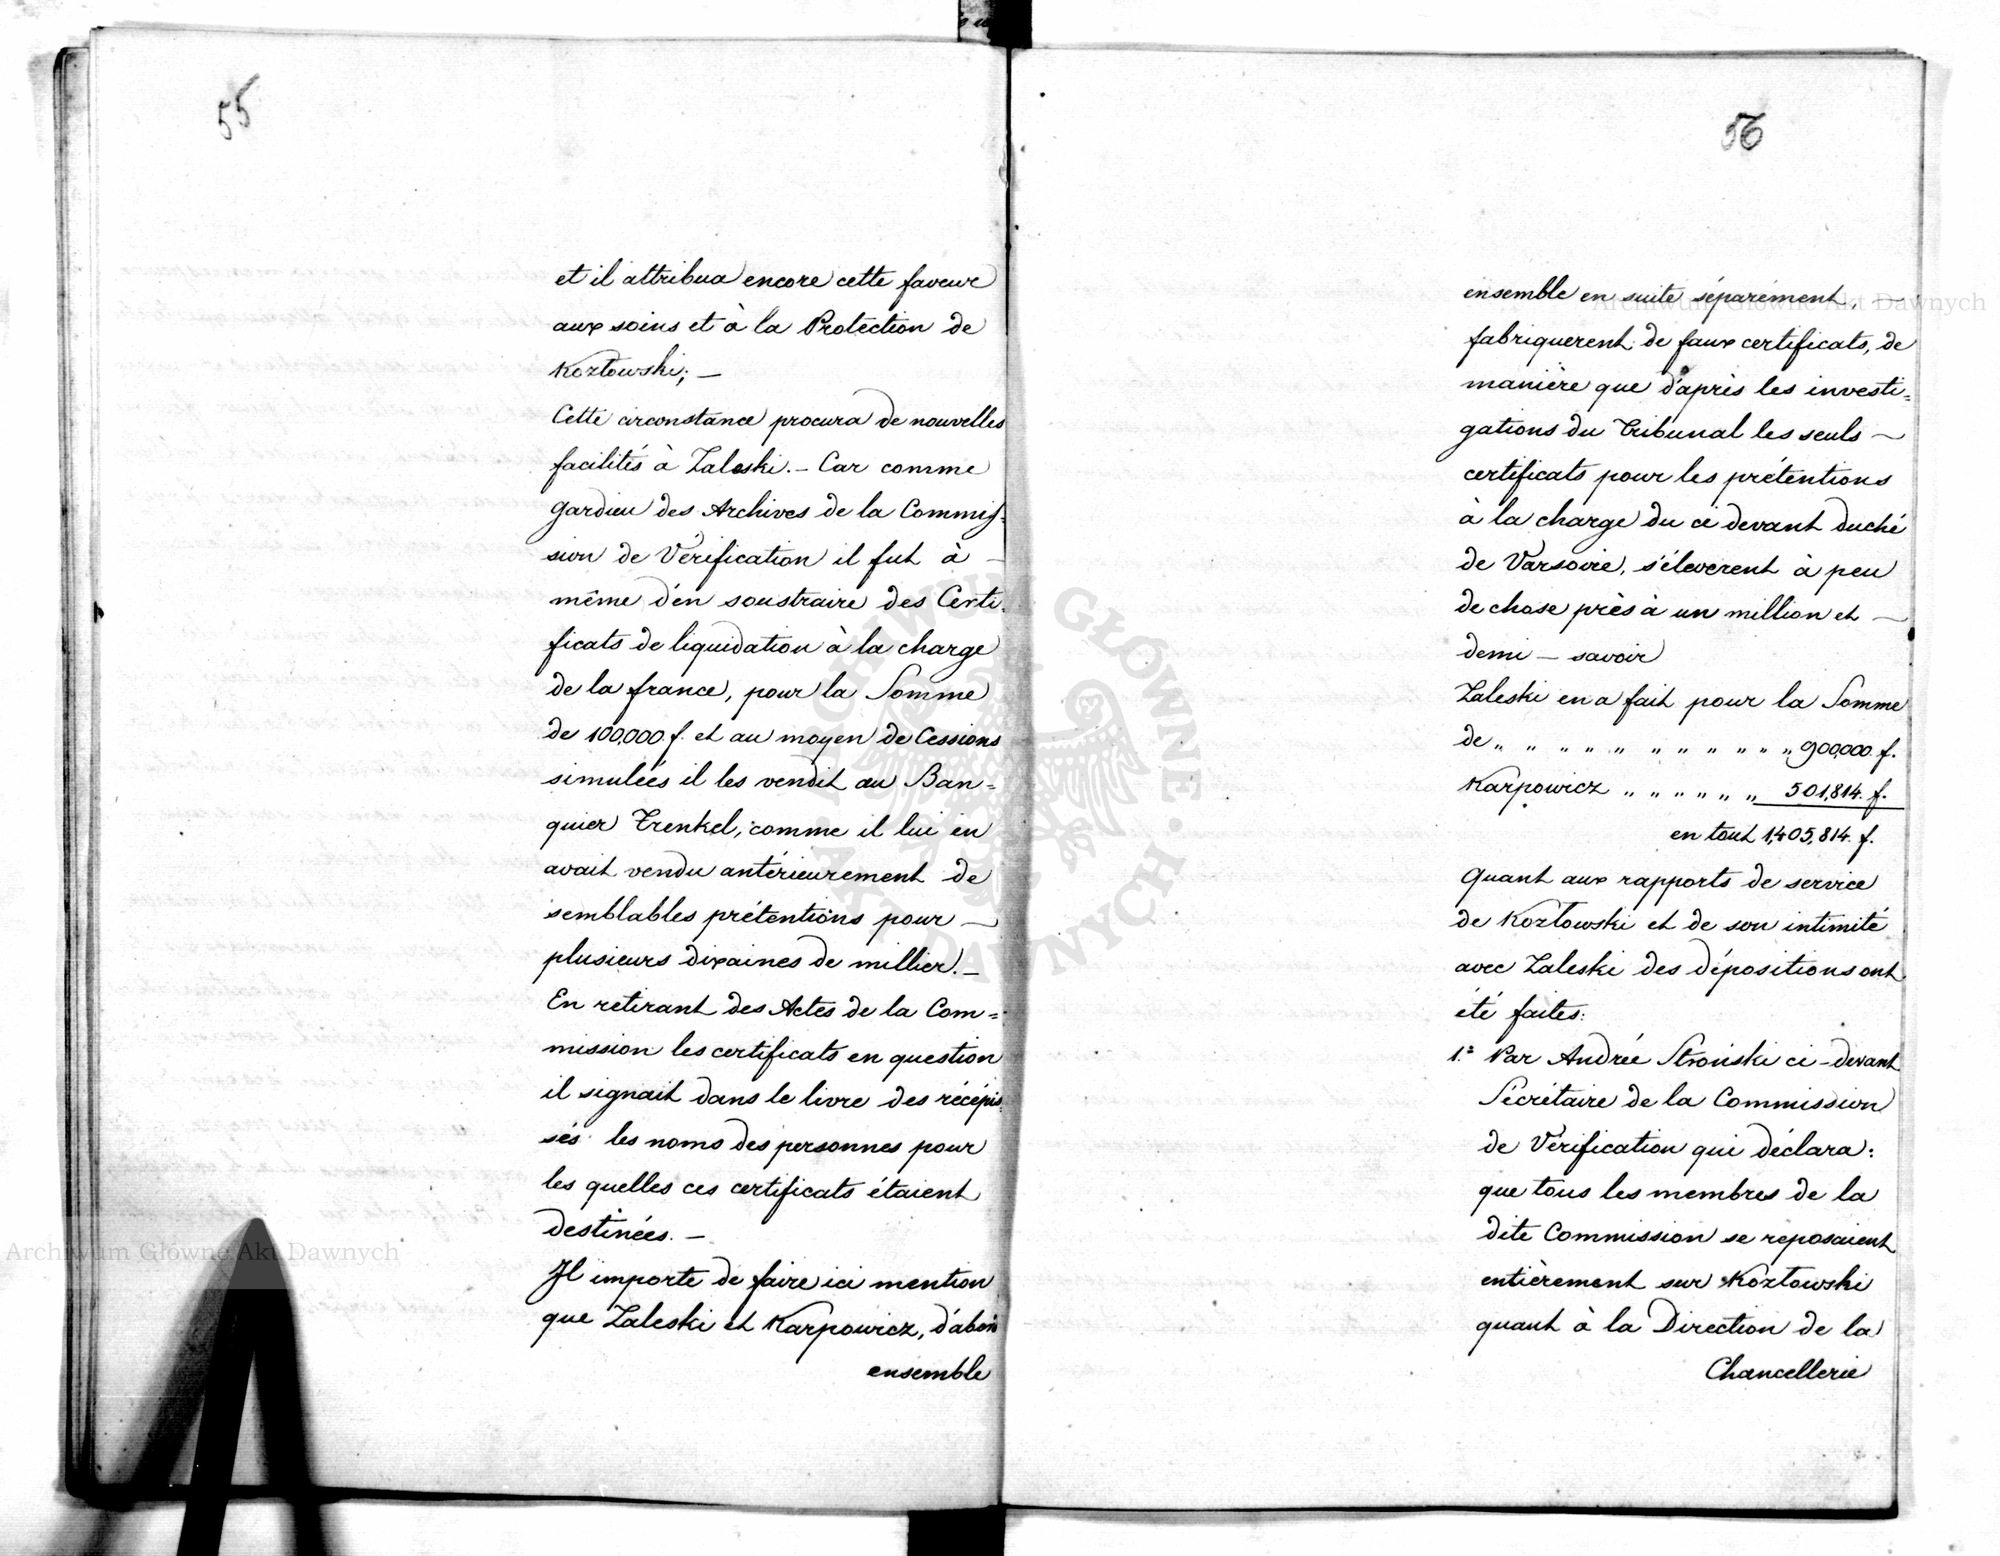 55
et il attribua encore cette faveur
aux soins et à la Protection de
Kozłowski; —
Cette circonstance procura de nouvelles
facilités à Zaleski. — Car comme
gardien des Archives de la Commis-
sion de Vérification il fut à —
même d'en soustraire des Certi-
ficats de liquidation à la charge
de la france, pour la Somme
de 100,000 f. et au moyen de Cessions
simulées il les vendit au Ban=
quier Frenkel, comme il lui en
avait vendu antérieurement de
semblables prétentions pour —
plusieurs dixaines de millier. —
En retirant des Actes de la Com=
mission les certificats en question
il signait dans le livre des récépis
sés les noms des personnes pour
les quelles ces certificats étaient
destinées. —
Il importe de faire ici mention
que Zaleski et Karpowicz, d'abord
ensemble
56
ensemble en suite séparément, —
fabriquerent de faux certificats, de
manière que d'après les investi=
gations du Tribunal les seuls —
certificats pour les prétentions
à la charge du ci devant duché
de Varsovie, s'éleverent à peu
de chose près à un million et —
demi — savoir
Zaleski en a fait pour la Somme
de „ „ „ „ „ „ „ „ „ „ „ 900,000. f.
Karpowicz „ „ „ „ „ „ 501,814. f.
en tout 1,405,814. f.
Quant aux rapports de service
de Kozłowski et de son intimité
avec Zaleski des dépositions ont
été faites:
1.° Par Andrée Stroński ci-devant
Sécrétaire de la Commission
de Vérification qui déclara:
que tous les membres de la
dite Commission se reposaient
entièrement sur Kozłowski
quant à la Direction de la
Chancellerie
Archiwum Główne Akt Dawnych
Archiwum Główne Akt Dawnych
ARCHIWUM GŁÓWNE · AKT DAWNYCH ·